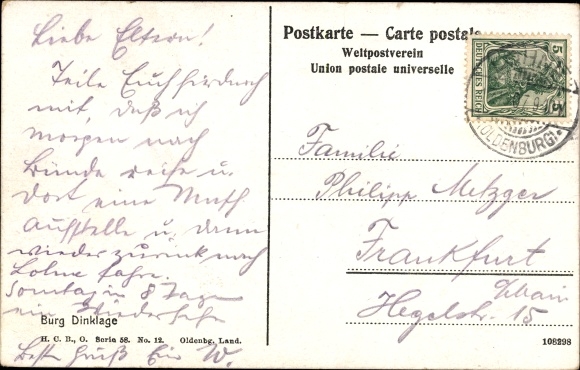 Liebe Eltern!
Teile Euch hierdurch
mit, daß ich
morgen nach
Bünde reise u.
dort eine
Aufstelle u. dann
wieder zurück nach
Lohne fahre.
Sonntag in 8 Tagen
ein Wiedersehn
Burg Dinklage
H. C. B., O. Serie 58. No. 12. Oldenbg. Land.
Gruß Eu W.
Postkarte — Carte postale
Weltpostverein
Union postale universelle
5
DEUTSCHES REICH
5
(OLDENBURG)
Familie
Philipp Metzger
Frankfurt
Hegelstr. 15
108298